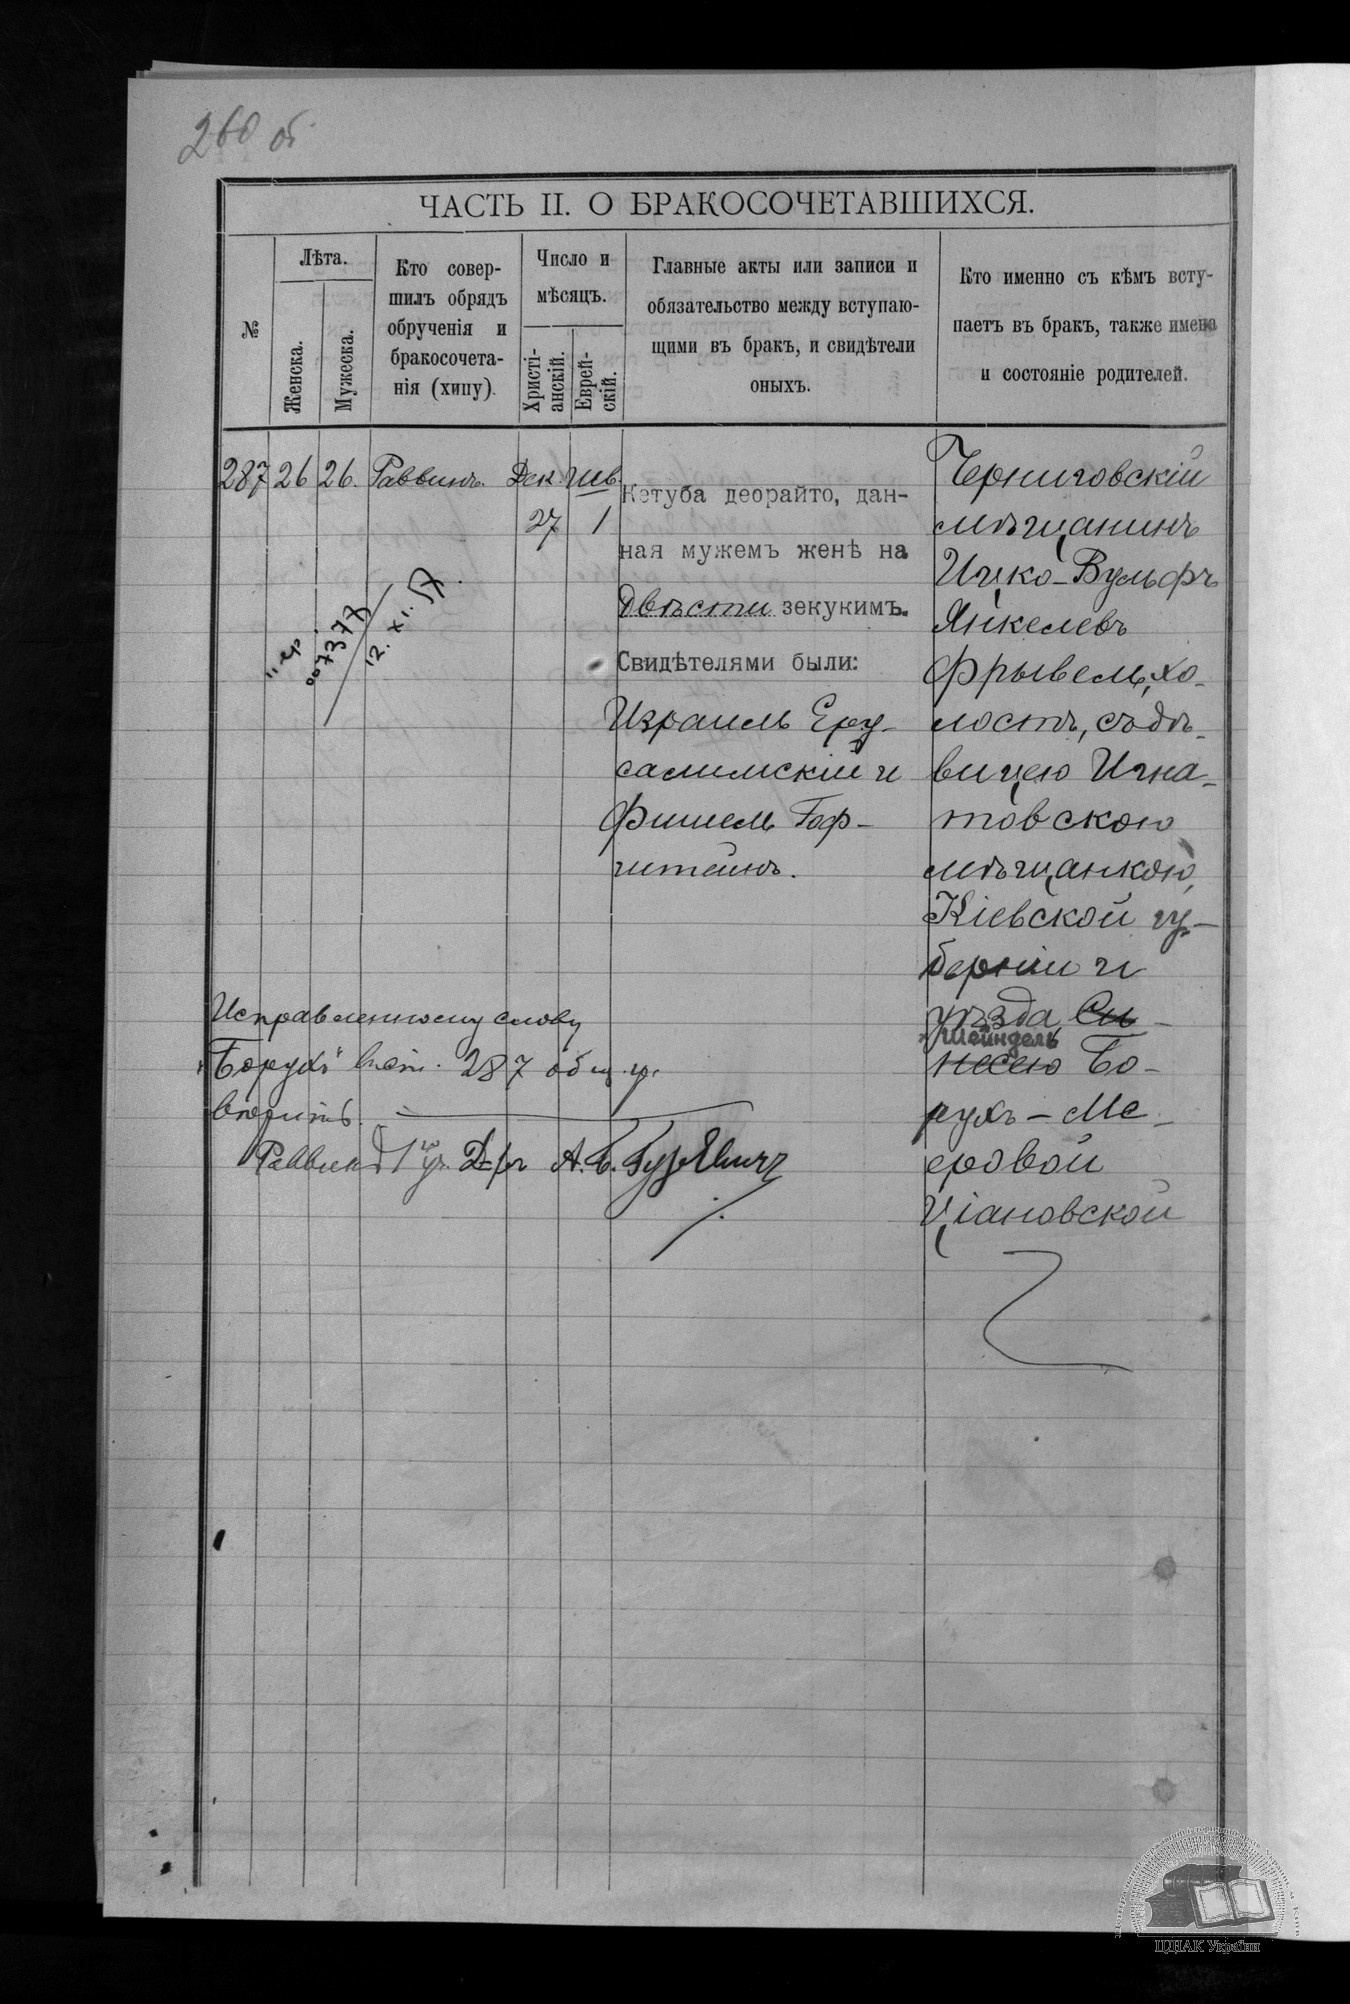 260 об
ЧАСТЬ II. О БРАКОСОЧЕТАВШИХСЯ.
№
Лѣта.
Женска.
Мужеска.
Кто совер-
шилъ обрядъ
обрученія и
бракосочета-
нія (хипу).
Число и
мѣсяцъ.
Христі-
анскій.
Еврей-
скій.
Главные акты или записи и
обязательство между вступаю-
щими въ бракъ, и свидѣтели
оныхъ.
Кто именно съ кѣмъ всту-
паетъ въ бракъ, также имена
и состояніе родителей.
287 26 26. Раввинъ. Дек. Шв.
27 1
Кетуба деорайто, дан-
ная мужемъ женѣ на
Двѣсти зекукимъ.
Свидѣтелями были:
Израиль Еру-
салимскій и
Фишель Гоф-
штейнъ.
Черниговскій
мѣщанинъ
Ицко-Вульфъ
Янкелевъ
Фрывель, хо-
лостъ, съ дѣ-
вицею Игна-
товскою
мѣщанкою,
Кіевской гу-
берніи и
уѣзда Си-
Шейндель
несею Бо-
рухъ-Ме-
еровой
Ціановской
007377
12. XI. 57.
Исправленному слову
"Борухъ" въ ст. 287 общ. гр.
вѣрить.
Раввинъ 1го уч. Д-ръ А. Б. Гуревичъ
ЦДІАК України